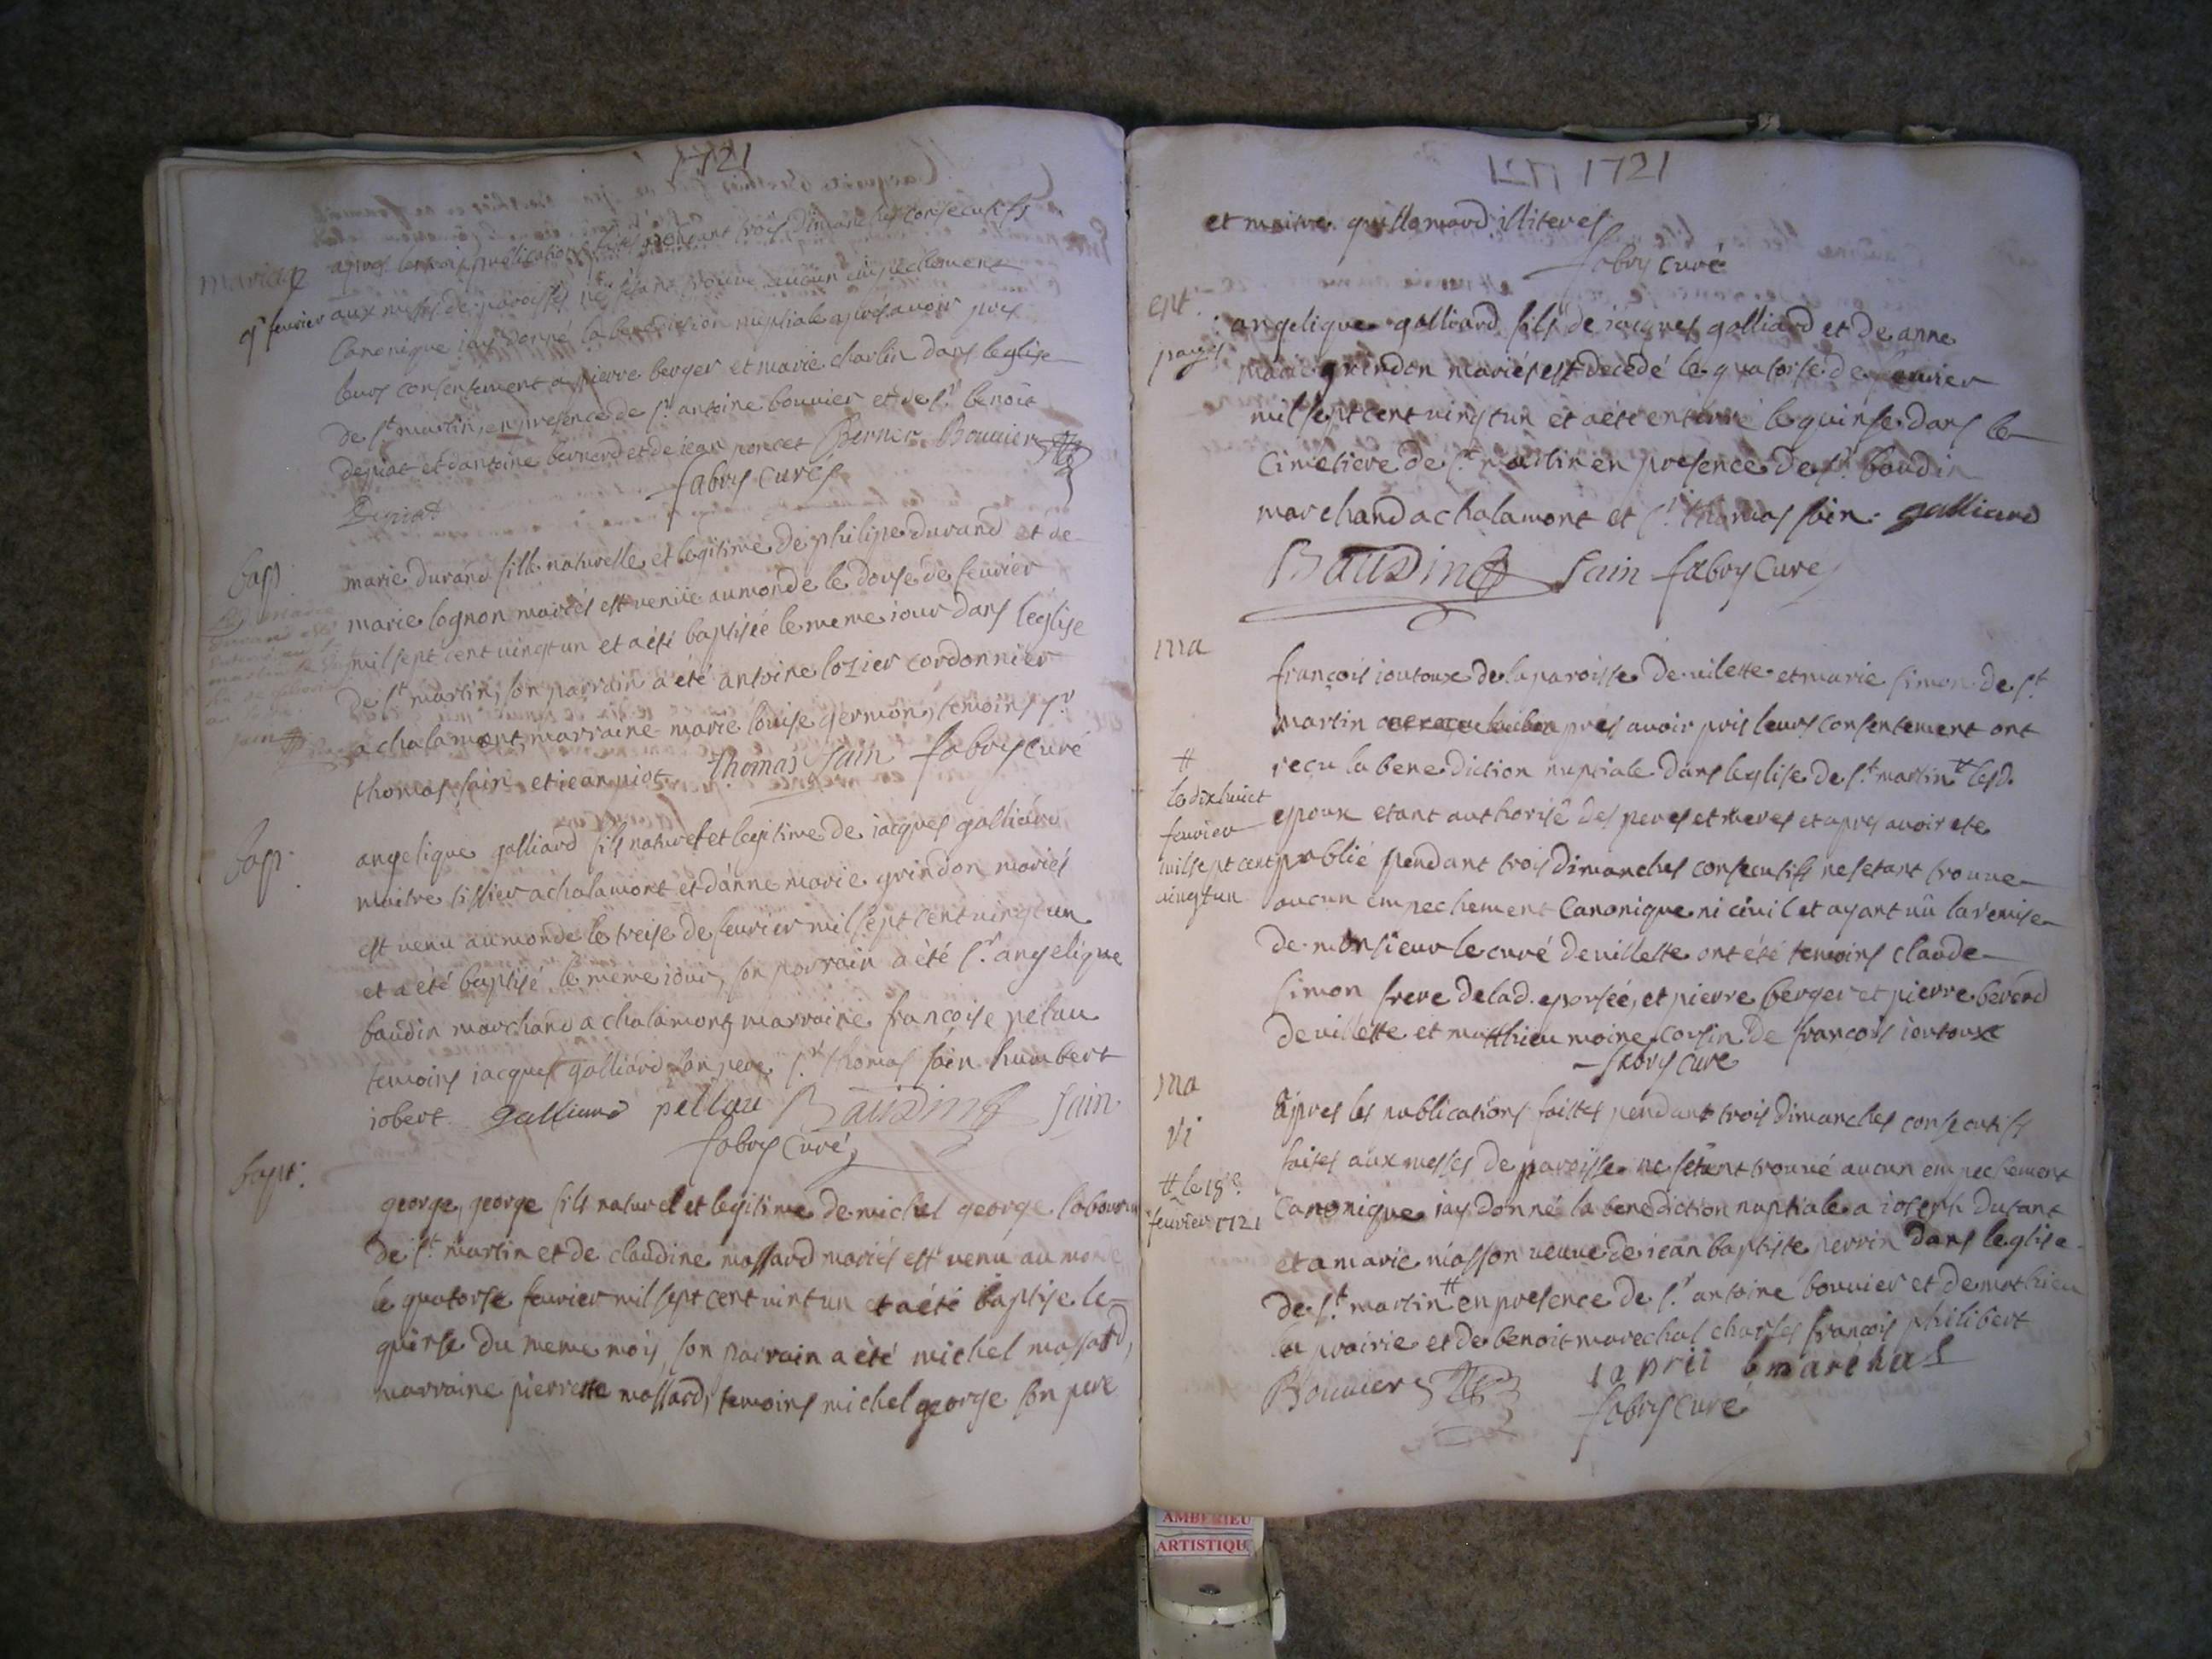 1721
mariage
9e feurier
apres les trois publications faites pendant trois dimanches consecutifs
aux messes de paroisses ne sestant trouvé aucun empechement
Canonique iay donné la benediction nuptiale apres avoir pris
leurs consentement a pierre berger et marie charlin dans leglise
de st martin, en presence de sr antoine bouuier et de sr benoit
depiat et dantoine bernerd et de iean poncet Berner Bouuier
fabry curé
Depiat
bap.
marie durand fille naturelle et legitime de philipe durand et de
marie lognon mariés est venüe au monde le douse de feurier
mil sept cent uingt un et a été baptisée le meme iour dans leglise
de st martin, son parrain a été antoine lozier cordonnier
a chalamont, marraine marie louise germon, temoins sr
thomas sain et iean uiot thomas sain fabry curé
marie
durand
martin
sain
bap.
angelique galliard fils naturel et legitime de iacques galliard
maitre tissier a chalamont et d'anne marie grindon mariés
est venu au monde le treise de feurier mil sept cent uingt un
et a été baptisé le meme iour, son parrain a été sr angelique
baudin marchand a chalamont, marraine francoise pelau
temoins iacques galliard son pere sr thomas sain humbert
iobert. galliard pellau Baudin sain
fabry curé
bapt.
george, george fils naturel et legitime de michel george laboureur
de st martin et de claudine massard mariés est venu au monde
le quatorse feurier mil sept cent uint un et a été baptise le
quinse du meme mois, son parrain a été michel massard,
marraine pierrette massard, temoins michel george son pere
1721 1721
et maitre guillomard illiterés
fabry curé
angelique galliard fils de iacques galliard et de anne
marie grindon mariés est decedé le quatorse de feurier
mil sept cent uingt un et a été enterré le quinse dans le
cimetiere de st martin en presence de sr baudin
marchand a chalamont et sr thomas sain. galliard
Baudin sain fabry curé
ma
françois ioutoux de la paroisse de uilette et marie simon de st
martin apres avoir pris leurs consentement ont
reçu la benediction nuptiale dans leglise de st martin # lesd.
epoux etant authorisé des peres et meres et apres avoir ete
publié pendant trois dimanches consecutifs ne setant trouue
aucun empechement Canonique ni ciuil et ayant uû la remise
de monsieur le curé de uillette ont été temoins claude
simon frere de lad. eporsée, et pierre berger et pierre berend
de uillette et matthieu moine cosin de francois ioutoux
fabry curé
#
le dix huict
feurier
mil sept cent
uingt un
ma
vi
apres les publications faittes pendant trois dimanches consecutifs
faites aux messes de paroisse ne setant trouué aucun empechement
Canonique iay donné la benediction nuptiale a ioseph dufant
et a marie niasson ueuue de iean baptiste perrin dans leglise
de st martin # en presence de sr antoine bouuier et de mathieu
la prairie et de benoit marechal charles françois philibert
# le 18e
feurier 1721
Bouuier laprii b marechal
fabry curé
AMBERIEU
ARTISTIQU